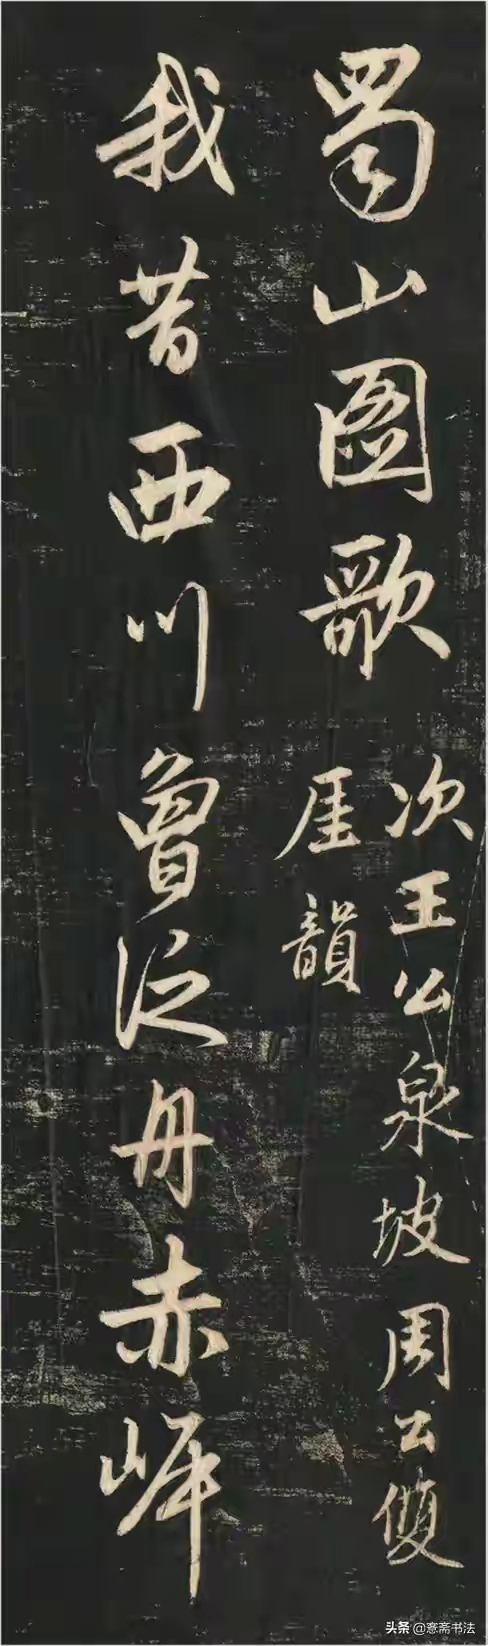 蜀山圖歌
次王公泉坡周公雙
厓韻
我昔西川曾泛舟赤岸
头条 @意斋书法